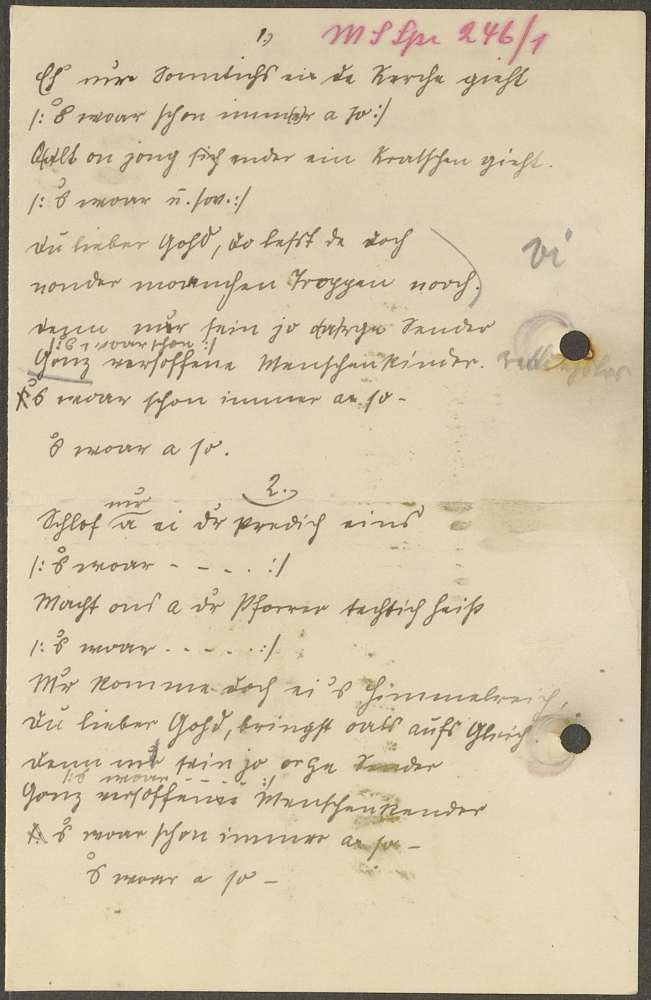 1.)
MS Spr 246/1
Eh' mir Sonntichs ei de Kerche gieht
/: 's woar schon immer a so :/
Alt on jong sich ender ein Kratschen gieht.
/: 's woar u.s.w. :/
Du lieber Gohd, do lesst de doch
vi
monchen Troppen nooch.
denn mir sein jo Sender
/: 's woar schon :/
Gonz versoffene Menschenkinder.
's woar schon immer a so -
's woar a so.
2.
nur
Schlof a ei dr Predich eins
/: 's woar - - - . :/
Macht ons a dr Pforrer techtich heiß
/: 's woar - - - - . :/
Mr komme doch ei's Himmelreich,
Du lieber Gohd, bringst oals aufs Gleich.
denn mir sein jo orge Sender
/: 's woar - - - :/
Gonz versoffene Menschenkender
's woar schon immer a so -
's woar a so -